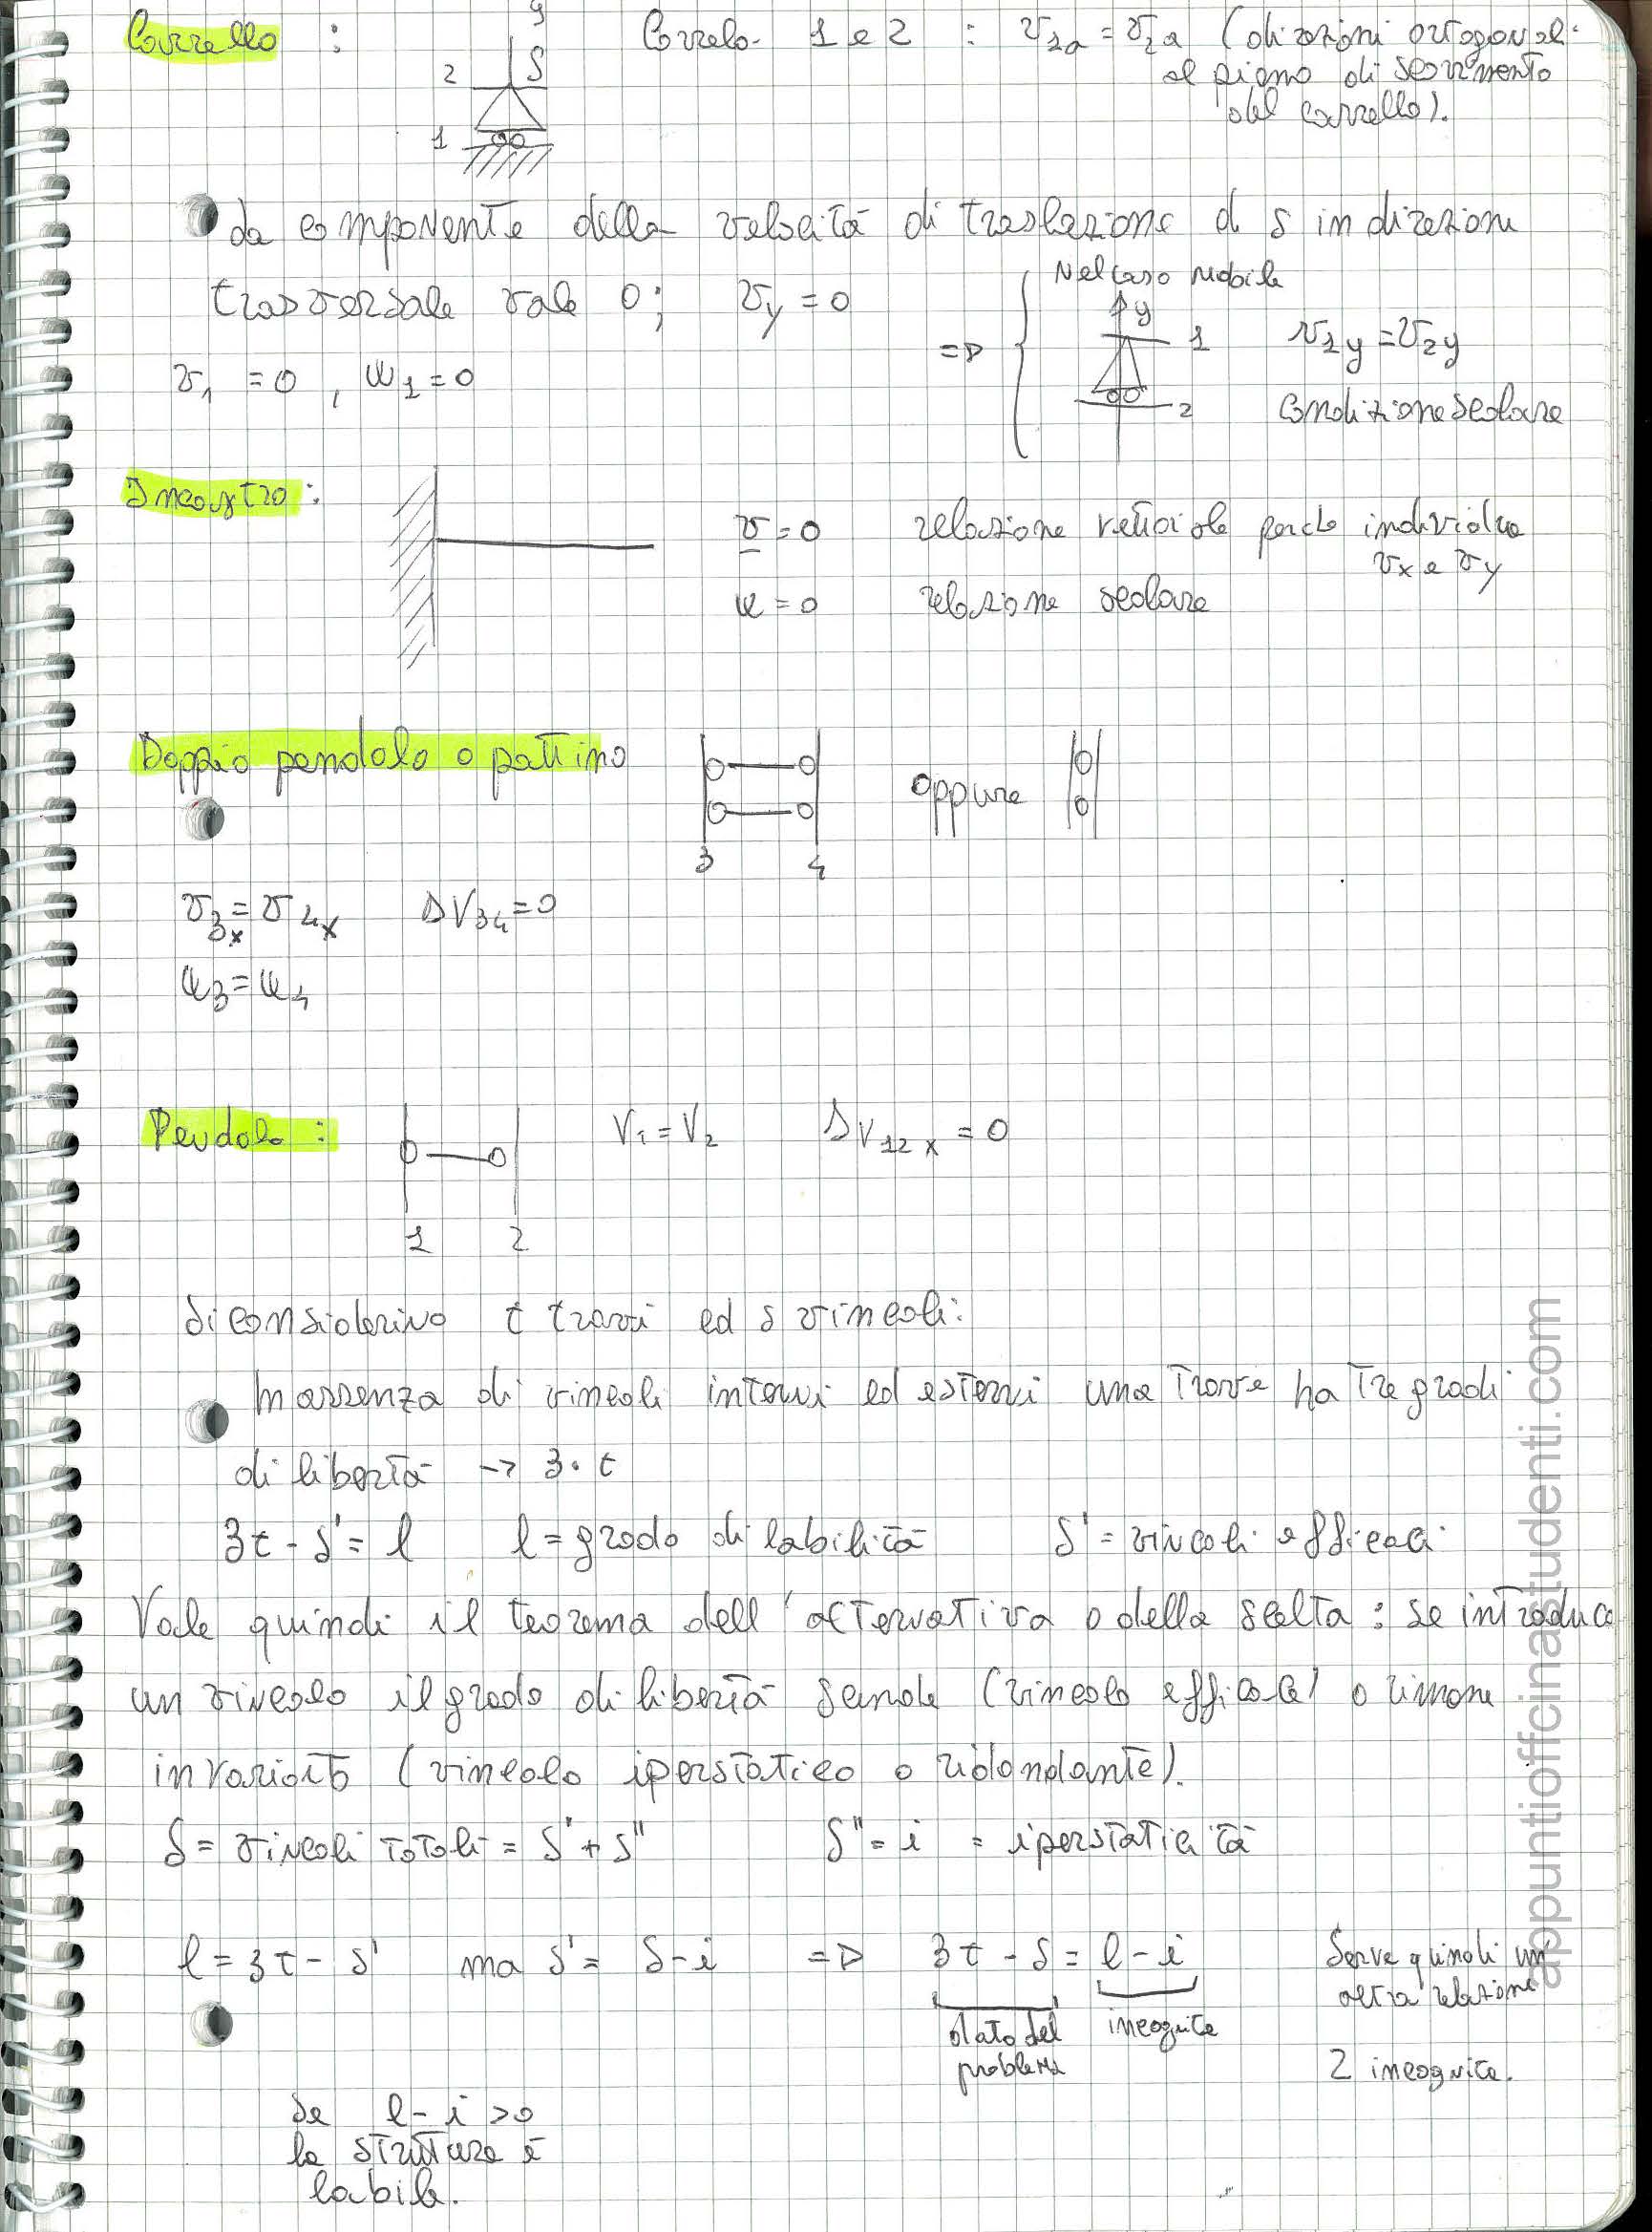 Carrello :
y
S
2
1
Carrello 1 e 2 : v1a = v2a (direzioni ortogonali
al piano di scorrimento
del carrello).
La componente della velocità di traslazione d S in direzione
trasversale vale 0; vy = 0
v1 = 0 , φ1 = 0
=>
Nel caso mobile
y
1
2
v1y = v2y
condizione scalare
Incastro :
v = 0 relazione vettoriale perché individua
vx e vy
φ = 0 relazione scalare
Doppio pendolo o pattino
oppure
3 4
v3x = v4x ΔV34 = 0
φ3 = φ4
Pendolo :
V1 = V2 ΔV12x = 0
1 2
Si considerino t travi ed s vincoli:
In assenza di vincoli interni ed esterni una trave ha tre gradi
di libertà -> 3·t
3t - s' = l l = grado di labilità s' = vincoli efficaci
Vale quindi il teorema dell'alternativa o della scelta : se introduco
un vincolo il grado di libertà scende (vincolo efficace) o rimane
invariato (vincolo iperstatico o ridondante).
s = vincoli totali = s' + s'' s'' = i = iperstaticità
l = 3t - s' ma s' = s - i => 3t - s = l - i
dato del
problema
incognite
Serve quindi un
altra relazione
2 incognite.
Se l - i > 0
la struttura è
labile.
appuntiofficinastudenti.com